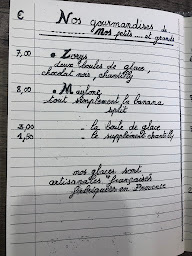 € Nos gourmandises de
Nos petits .... et grands
7,00 • Zorus
deux boules de glace,
chocolat noir, chantilly
8,00 • Maylone
tout simplement la banana
split
3,00 _ la boule de glace
1,50 _ le supplément chantilly
nos glaces sont
artisanales françaises
fabriquées en Provence